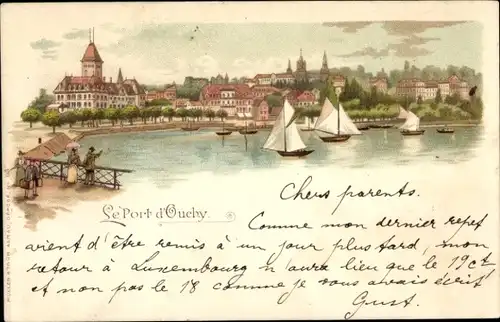 Le Port d'Ouchy.
Chers parents.
Comme mon dernier repet
avient d'être remis à un jour plus tard, mon
retour à Luxembourg n'aura lieu que le 19 ct
et non pas le 18 comme je vous avais écrit
Gust.